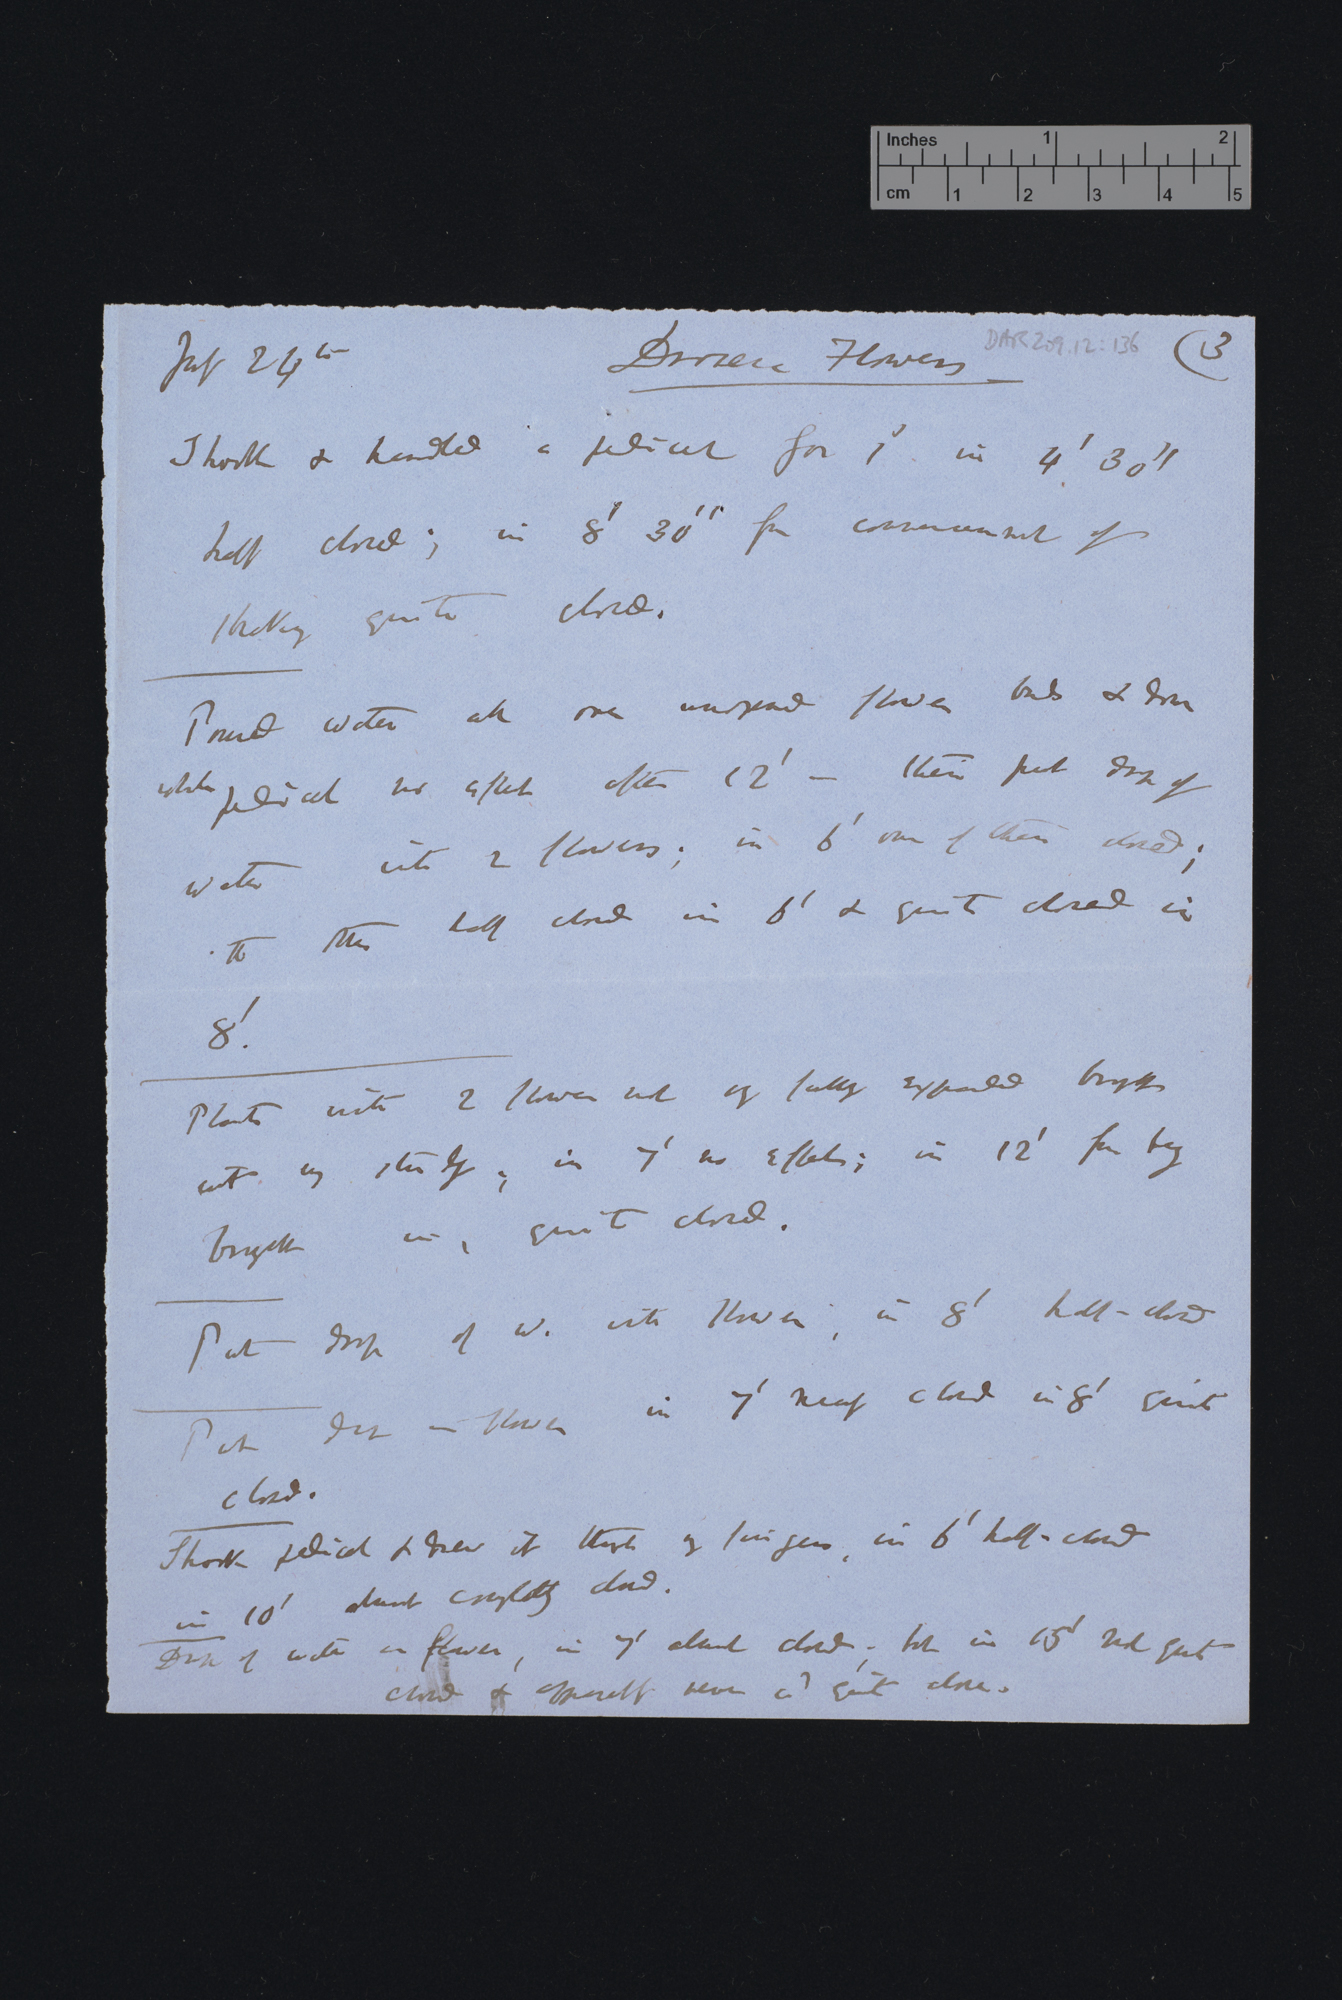 Inches 1 2
cm 1 2 3 4 5
DAR 209.12:136
July 24th Drosera Flowers (3
Shook & handled a pedicel for 1' in 4' 30"
half closed; in 8' 30" from commencement of
shaking quite closed.
Poured water all over unopened flower buds & down
whole pedicel no effect after 12' — then put drop of
water into 2 flowers; in 6' one of them closed;
the other half closed in 6' & quite closed in
8'.
Plants with 2 flowers not fully expanded brought
into my study; in 7' no effect; in 12' from being
brought in, quite closed.
Put drop of w. into flower; in 8' half-closed
Put drop in flower in 7' nearly closed in 8' quite
closed.
Shook pedicel & drew it through my fingers, in 6' half-closed
in 10' almost completely closed.
Drop of water in flower, in 7' almost closed, but in 15' not quite
closed & apparently never quite close.